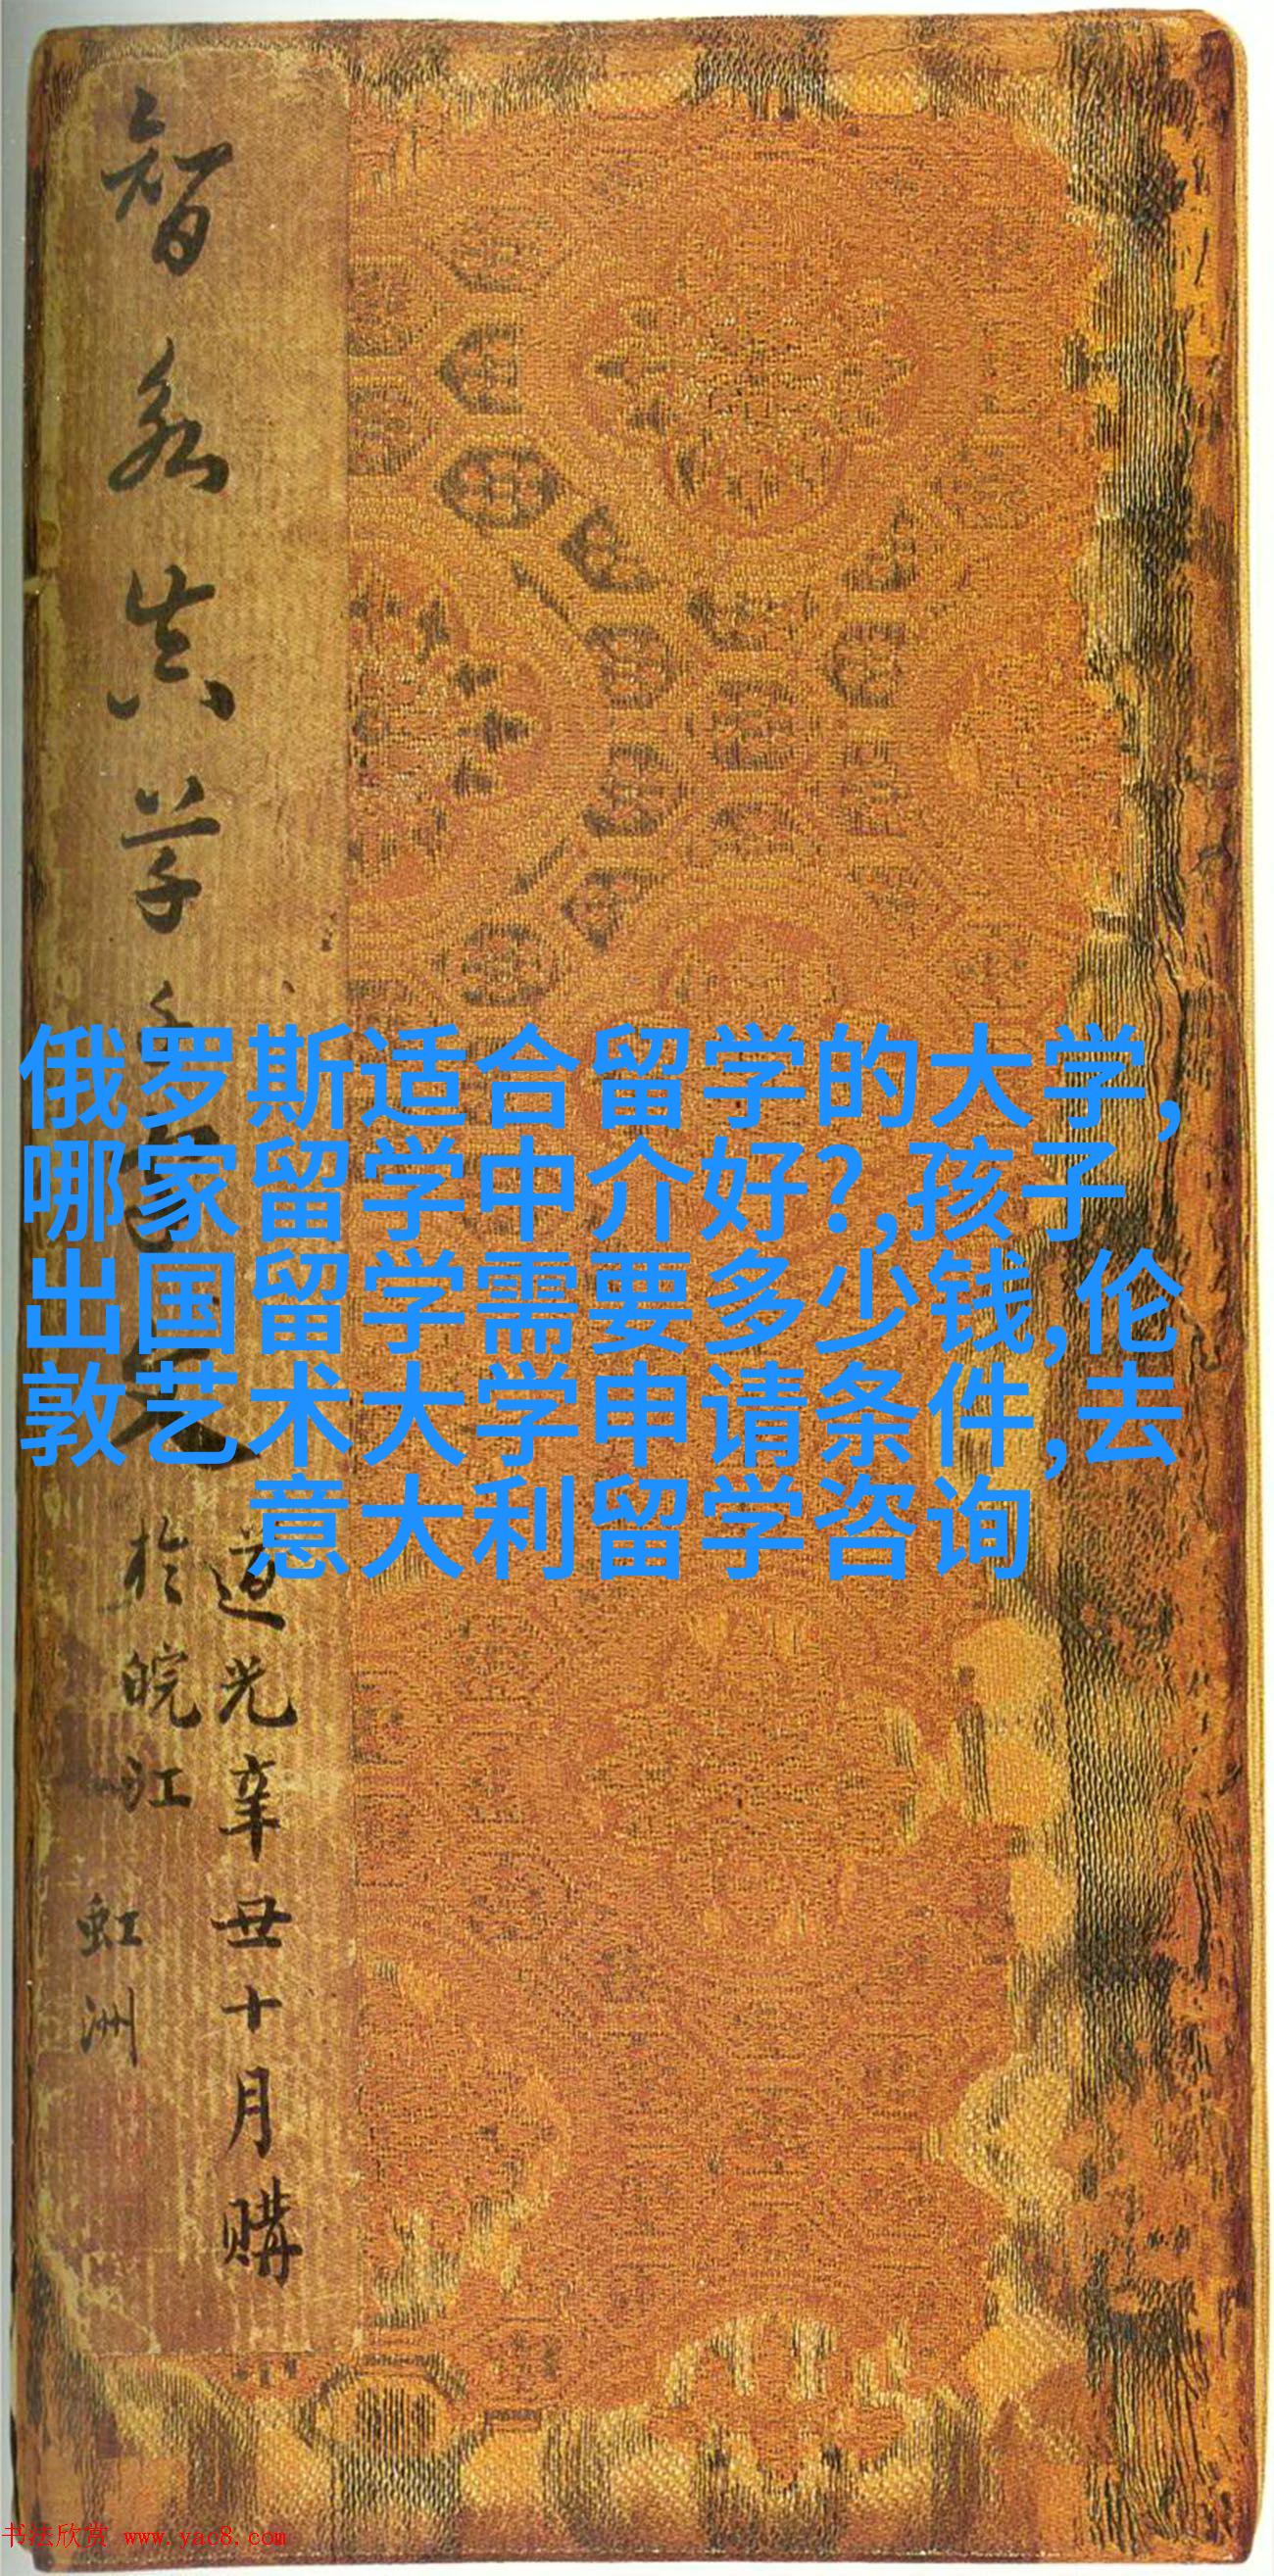 智永真草千
俄罗斯适合留学的大学,
哪家留学中介好?,孩子
出国留学需要多少钱,伦
敦艺术大学申请条件,去
意大利留学咨询
道光辛丑十月購
於皖江
虹洲
书法欣赏 www.yac8.com